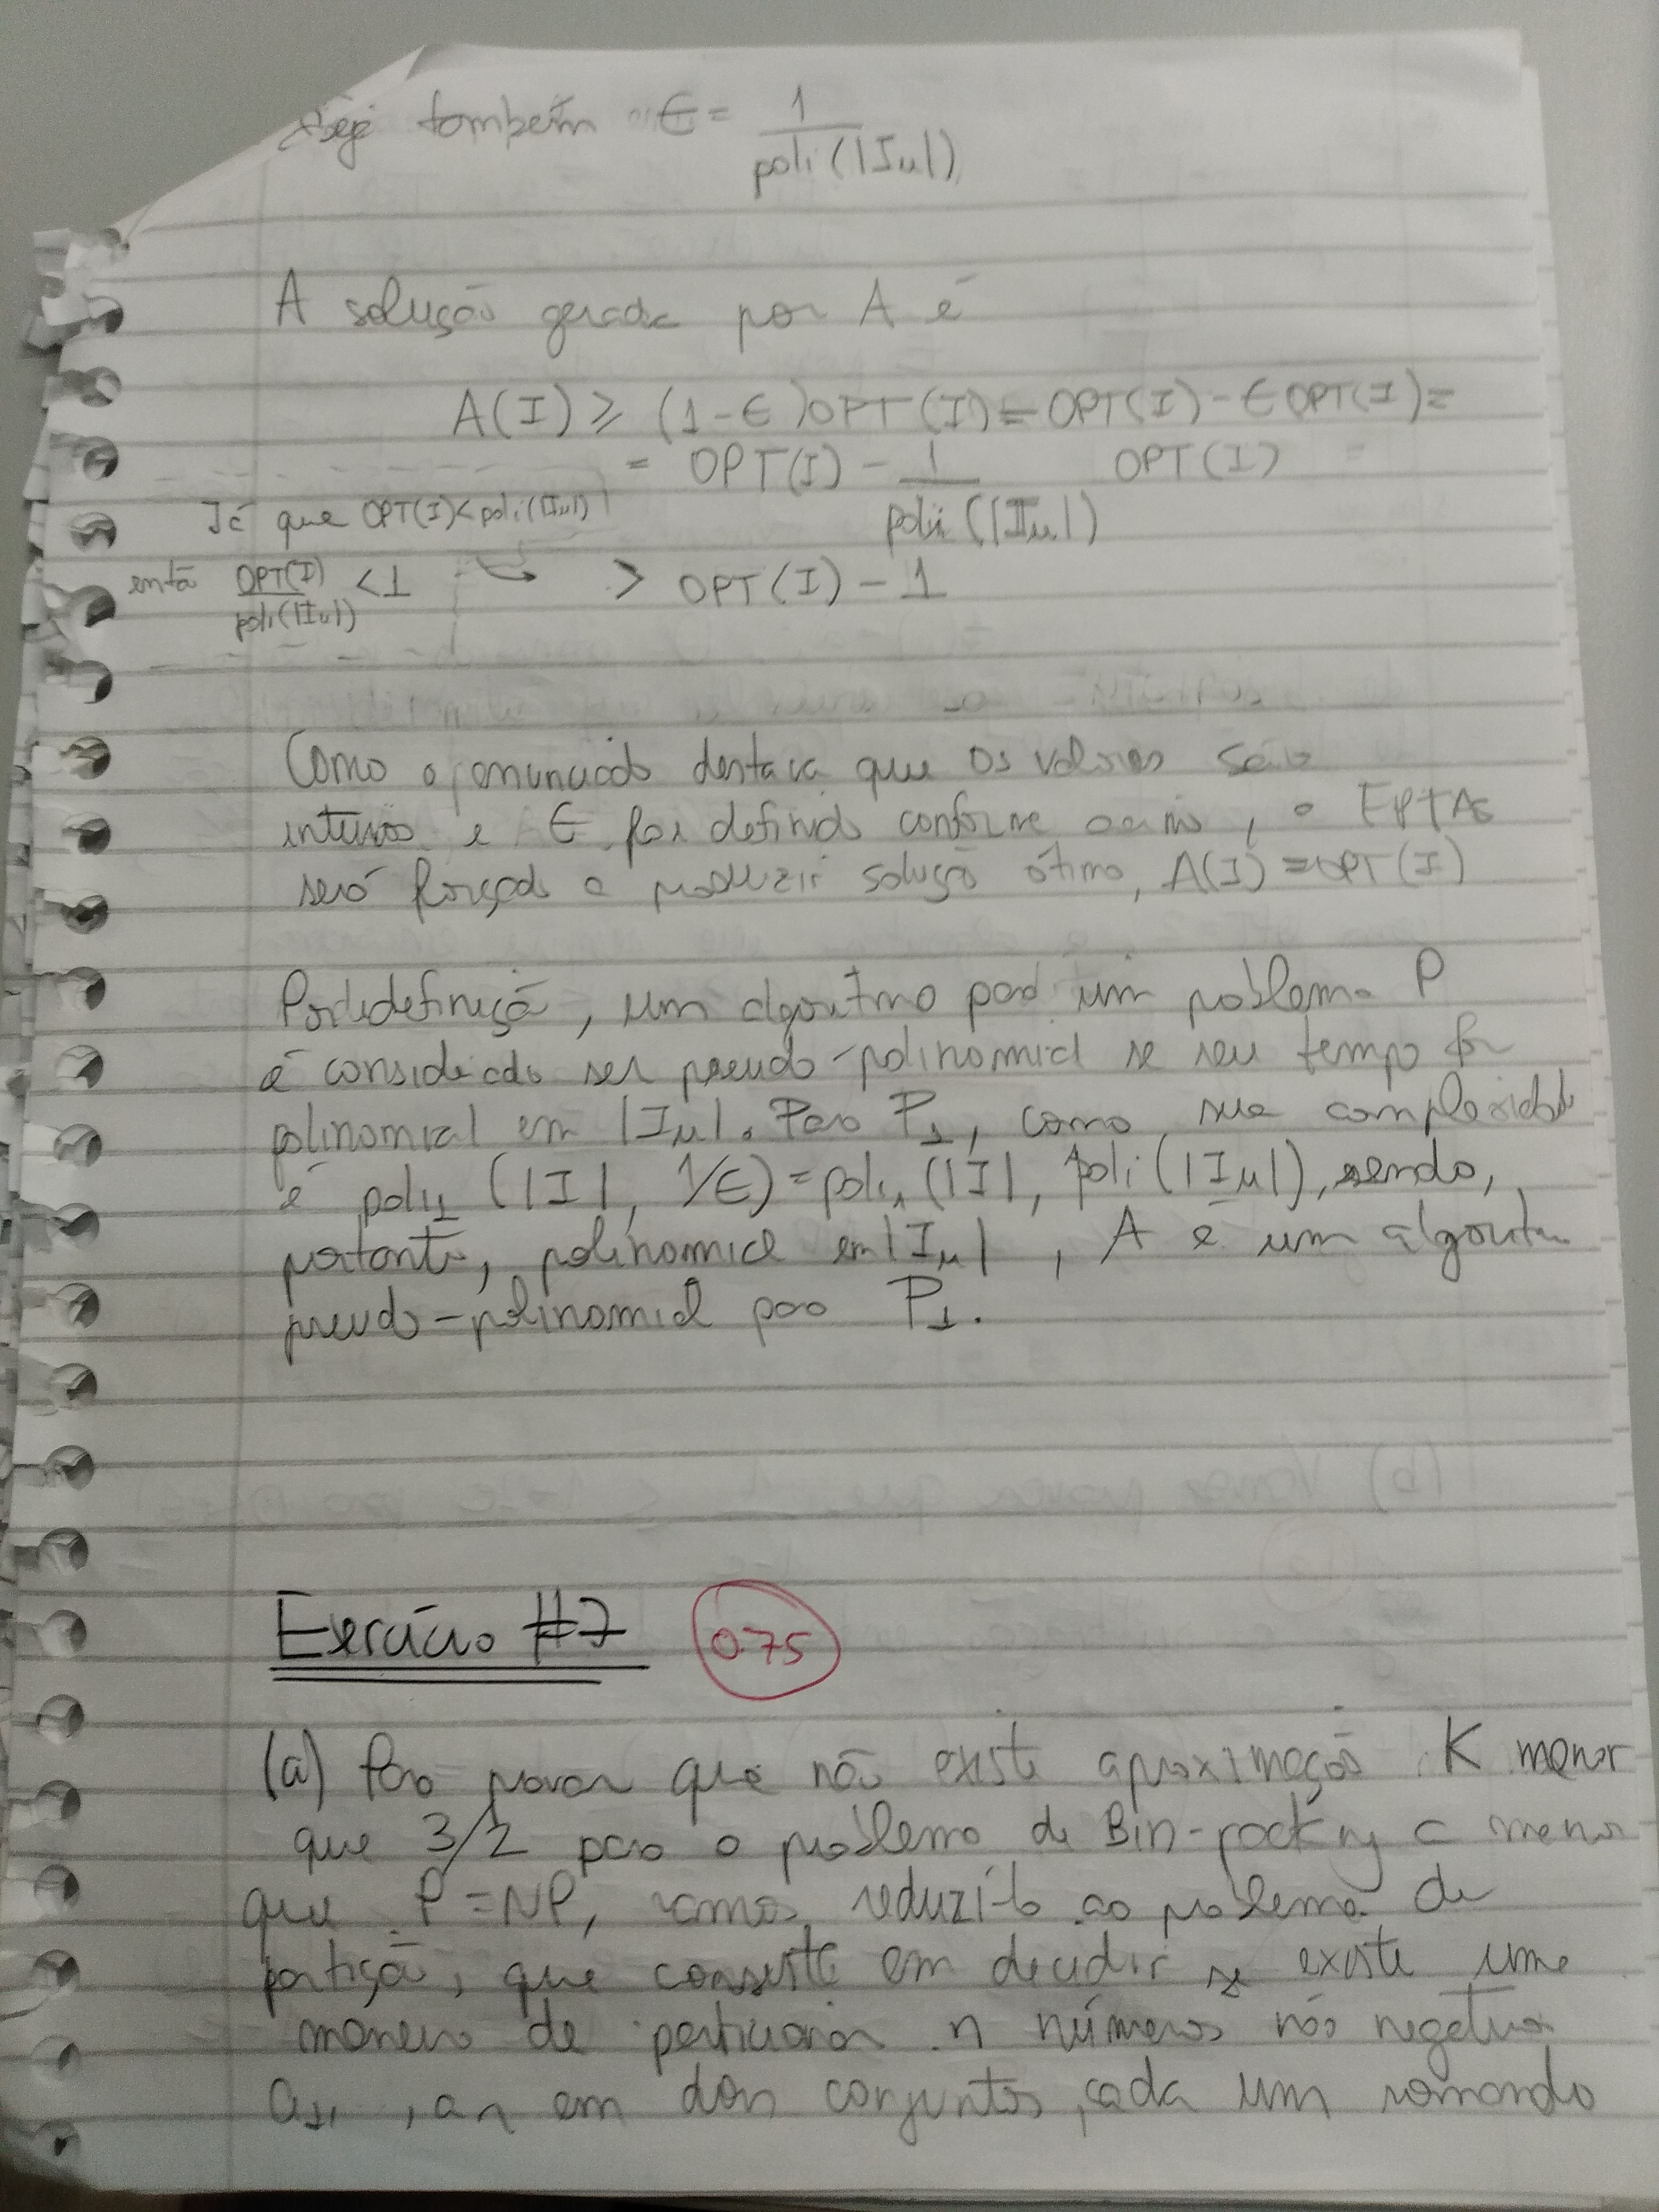 Seja também ε = 1 / poli(|Iu|)
A solução gerada por A é
A(I) ≥ (1-ε)OPT(I) = OPT(I) - εOPT(I) =
= OPT(I) - 1 / poli(|Iu|) OPT(I) =
Já que OPT(I) < poli(|Iu|)
então OPT(I) / poli(|Iu|) < 1 → > OPT(I) - 1
Como o enunciado destaca que os valores são
inteiros e ε foi definido conforme acima, o FPTAS
será forçado a produzir solução ótima, A(I) = OPT(I)
Por definição, um algoritmo para um problema P
é considerado ser pseudo-polinomial se seu tempo for
polinomial em |Iu|. Para P1, como sua complexidade
é poli1 (|I|, 1/ε) = poli1 (|I|, poli(|Iu|), sendo,
portanto, polinomial em |Iu|, A é um algoritmo
pseudo-polinomial para P1.
Exercício #7 0.75
(a) Para provar que não existe aproximação K menor
que 3/2 para o problema de Bin-packing a menos
que P = NP, vamos reduzi-lo ao problema de
partição, que consiste em decidir se existe uma
maneira de particionar n números não negativos
a1, , an em dois conjuntos, cada um somando